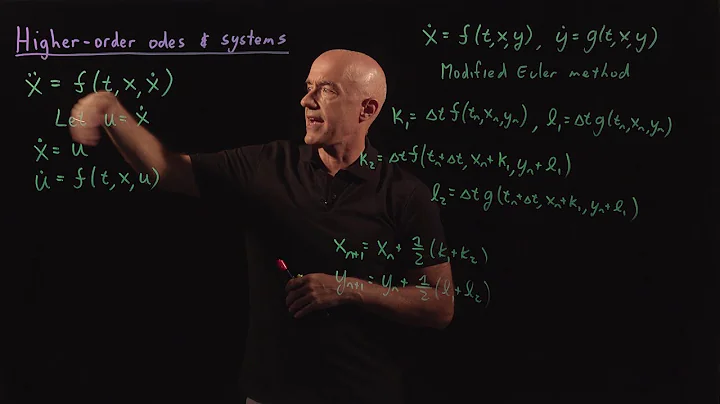 Higher-order odes & systems
ẍ = f(t, x, ẋ)
Let u = ẋ
ẋ = u
u̇ = f(t, x, u)
ẋ = f(t,x,y), ẏ = g(t,x,y)
Modified Euler method
k₁ = Δt f(tₙ,xₙ,yₙ), l₁ = Δt g(tₙ,xₙ,yₙ)
k₂ = Δt f(tₙ+Δt, xₙ+k₁, yₙ+l₁)
l₂ = Δt g(tₙ+Δt, xₙ+k₁, yₙ+l₁)
xₙ₊₁ = xₙ + 1/2 (k₁+k₂)
yₙ₊₁ = yₙ + 1/2 (l₁+l₂)